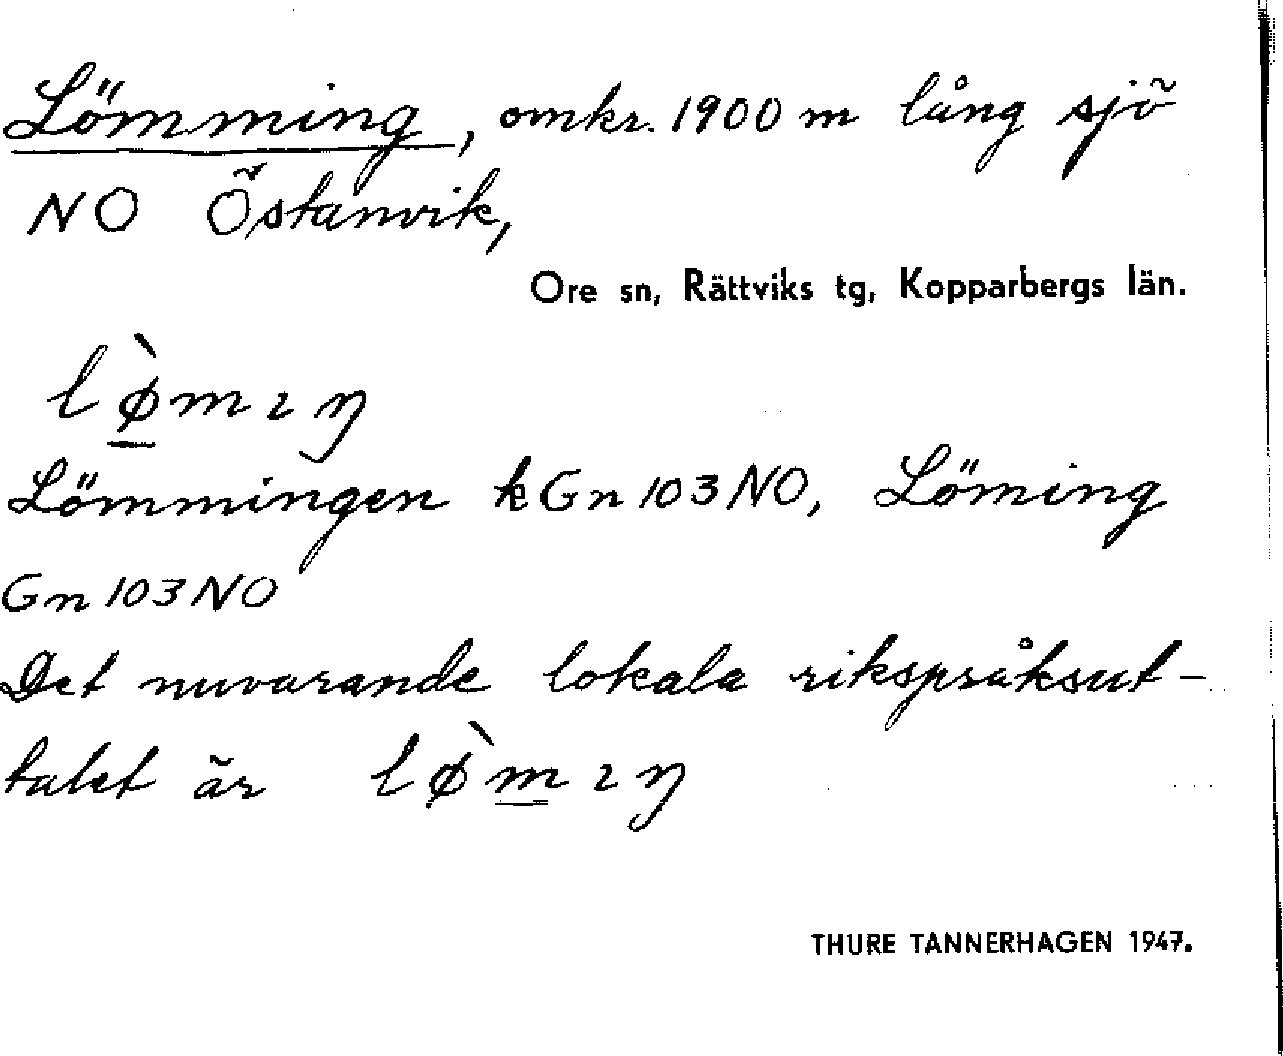 Lömming, omkr. 1900 m lång sjö
NO Östanvik,
Ore sn, Rättviks tg, Kopparbergs län.
lø̲̀mıŋ
Lömmingen kGn103NO, Löming
Gn103NO
Det nuvarande lokala rikspråksut-
talet är lø̀m̲ıŋ
THURE TANNERHAGEN 1947.